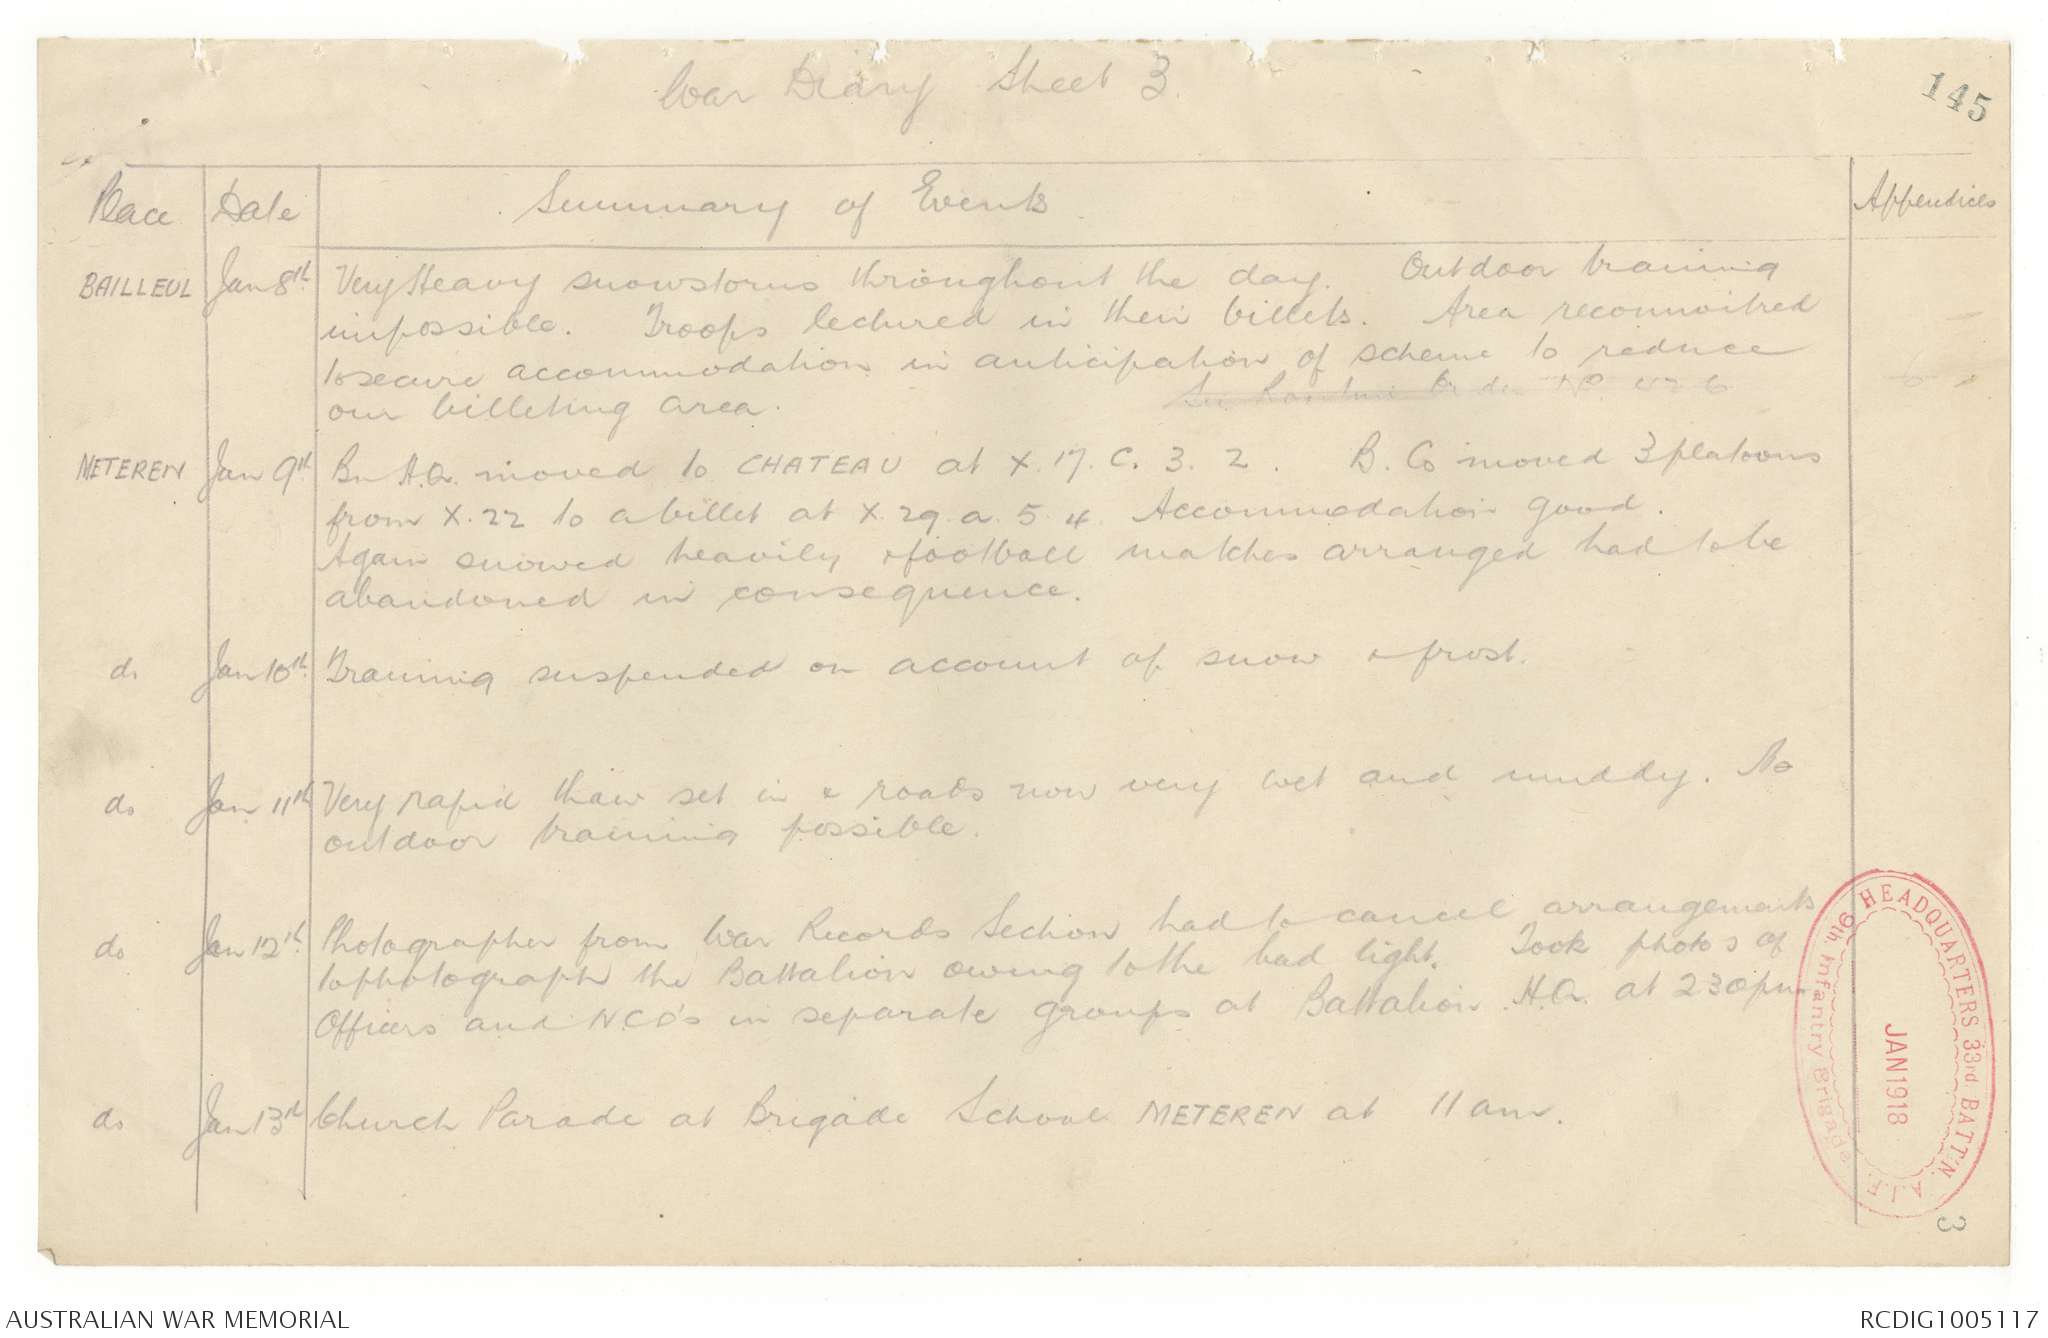 War Diary Sheet 3.
145
Place Date Summary of Events Appendices
BAILLEUL Jan 8th Very Heavy snowstorms throughout the day. Outdoor training
impossible. Troops lectured in their billets. Area reconnoitred
to secure accommodation in anticipation of scheme to reduce
our billeting area.
METEREN Jan 9th Bn H.Q. moved to CHATEAU at X.17.C.3.2. B. Co moved 3 platoons
from X.22 to a billet at X.29.a.5.4. Accommodation good.
Again snowed heavily & football matches arranged had to be
abandoned in consequence.
do Jan 10th Training suspended on account of snow & frost.
do Jan 11th Very rapid thaw set in & roads now very wet and muddy. No
outdoor training possible.
do Jan 12th Photographer from War Records Section had to cancel arrangements
to photograph the Battalion owing to the bad light. Took photos of
Officers and NCO's in separate groups at Battalion H.Q. at 230pm
do Jan 13th Church Parade at Brigade School METEREN at 11am.
HEADQUARTERS 33rd. BATT'N. A.I.F.
9th. Infantry Brigade
JAN 1918
3
AUSTRALIAN WAR MEMORIAL RCDIG1005117